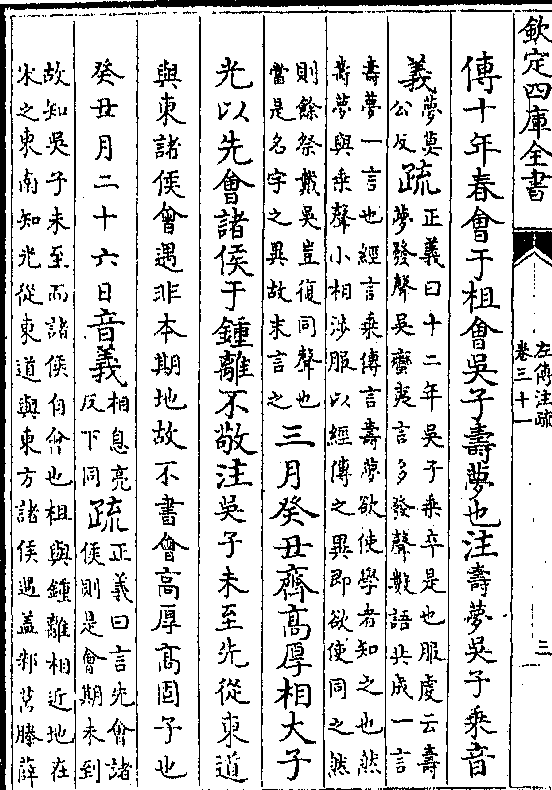 欽定四庫全書
左傳注疏
卷三十一
三
傳十年春會于柤會吳子壽夢也注壽夢吳子乘音
義夢莫公反疏正義曰十二年吳子乘卒是也服虔云壽
夢發聲吳蠻夷言多發聲數語共成一言
壽夢一言也經言乘傳言壽夢欲使學者知之也然
壽夢與乘聲小相涉服以經傳之異即欲使同之然
則餘祭戴吳豈復同聲也
當是名字之異故未言之三月癸丑齊高厚相大子
光以先會諸侯于鍾離不敬注吳子未至先從東道
與東諸侯會遇非本期地故不書會高厚高固子也
癸丑月二十六日音義相息亮反下同疏正義曰言先會諸
侯則是會期未到
故知吳子未至而諸侯自會也柤與鍾離相近地在
水之東南知光從東道與東方諸侯遇蓋邾莒滕薛